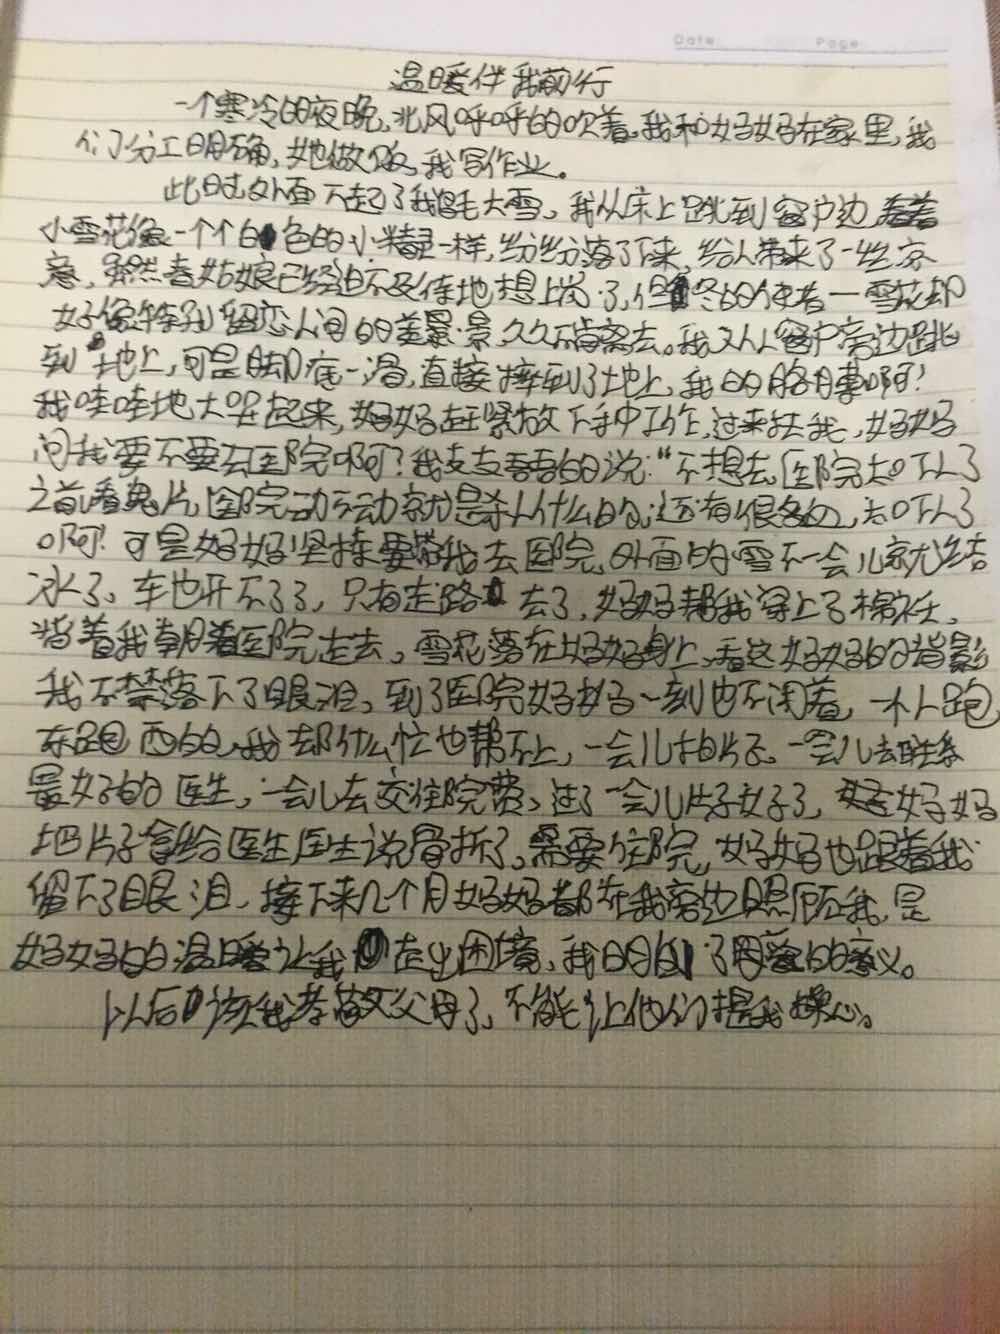 Date Page
温暖伴我前行
一个寒冷的夜晚,北风呼呼的吹着,我和妈妈在家里,我
们分工明确,她做饭,我写作业。
此时外面下起了鹅毛大雪,我从床上跳到窗户边看着
小雪花像一个个白色的小精灵一样,纷纷落了下来,给人带来了一丝凉
意,虽然春姑娘已经迫不及待地想上岗了,但冬的使者一雪花却
好像特别留恋人间的美景,久久不肯离去。我又从窗户旁边跳
到地上,可是脚底一滑,直接摔到了地上,我的胳膊啊!
我哇哇地大哭起来,妈妈赶紧放下手中工作,过来扶我,妈妈
问我要不要去医院啊?我支支吾吾的说:“不想去,医院太吓人了
之前看鬼片,医院动不动就是杀人什么的,还有很多血,太吓人了
啊!可是妈妈坚持要带我去医院,外面的雪不一会儿就结
冰了,车也开不了了,只有走路去了,妈妈帮我穿上了棉袄,
背着我朝着医院走去,雪花落在妈妈身上,看这妈妈的背影
我不禁落下了眼泪,到了医院妈妈一刻也不闲着,一个人跑
东跑西的,我却什么忙也帮不上,一会儿拍片子,一会儿去联系
最好的医生,一会儿去交住院费,过了一会儿片子好了,妈妈
把片子拿给医生医生说骨折了,需要住院,妈妈也跟着我
留下了眼泪,接下来几个月妈妈都在我旁边照顾我,是
妈妈的温暖让我走出困境,我明白了母爱的意义。
以后该我孝敬父母了,不能让他们提我操心。